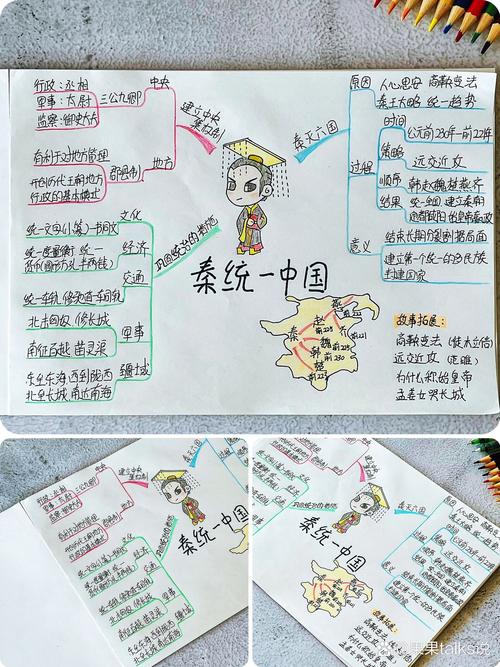 行政:丞相
军事:太尉
监察:御史大夫
三公九卿
中央
有利于对地方管理
开创历代王朝地方
行政的基本模式
郡县制
地方
建立中央
集权制
统一文字(小篆)书同文
文化
统一度量衡 统一
货币(圆形方孔半两钱)
经济
统一车轨 修驰道 车同轨
交通
北击匈奴 修长城
南征百越 凿灵渠
军事
东至东海 西到陇西
北至长城 南达南海
疆域
巩固统治的措施
秦统一中国
秦灭六国
原因
人心思安 商鞅变法
秦王大略 统一趋势
过程
时间
公元前230年—前221年
策略
远交近攻
顺序
韩赵魏楚燕齐
结果
统一全国 建立秦朝
定都咸阳
意义
结束长期的割据局面
建立第一个统一的多民族
封建国家
秦
赵
前228
燕
齐
前221
魏
前225
韩
前230
楚
故事拓展:
商鞅变法(徙木立信)
远交近攻(范雎)
为什么称始皇帝
孟姜女哭长城
果果talks说